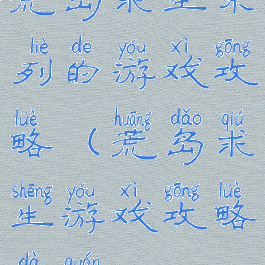 荒岛求生求
liè de yóu xì gōng
列的游戏攻
lüè huāng dǎo qiú
略（荒岛求
shēng yóu xì gōng lüè
生游戏攻略
dà quán